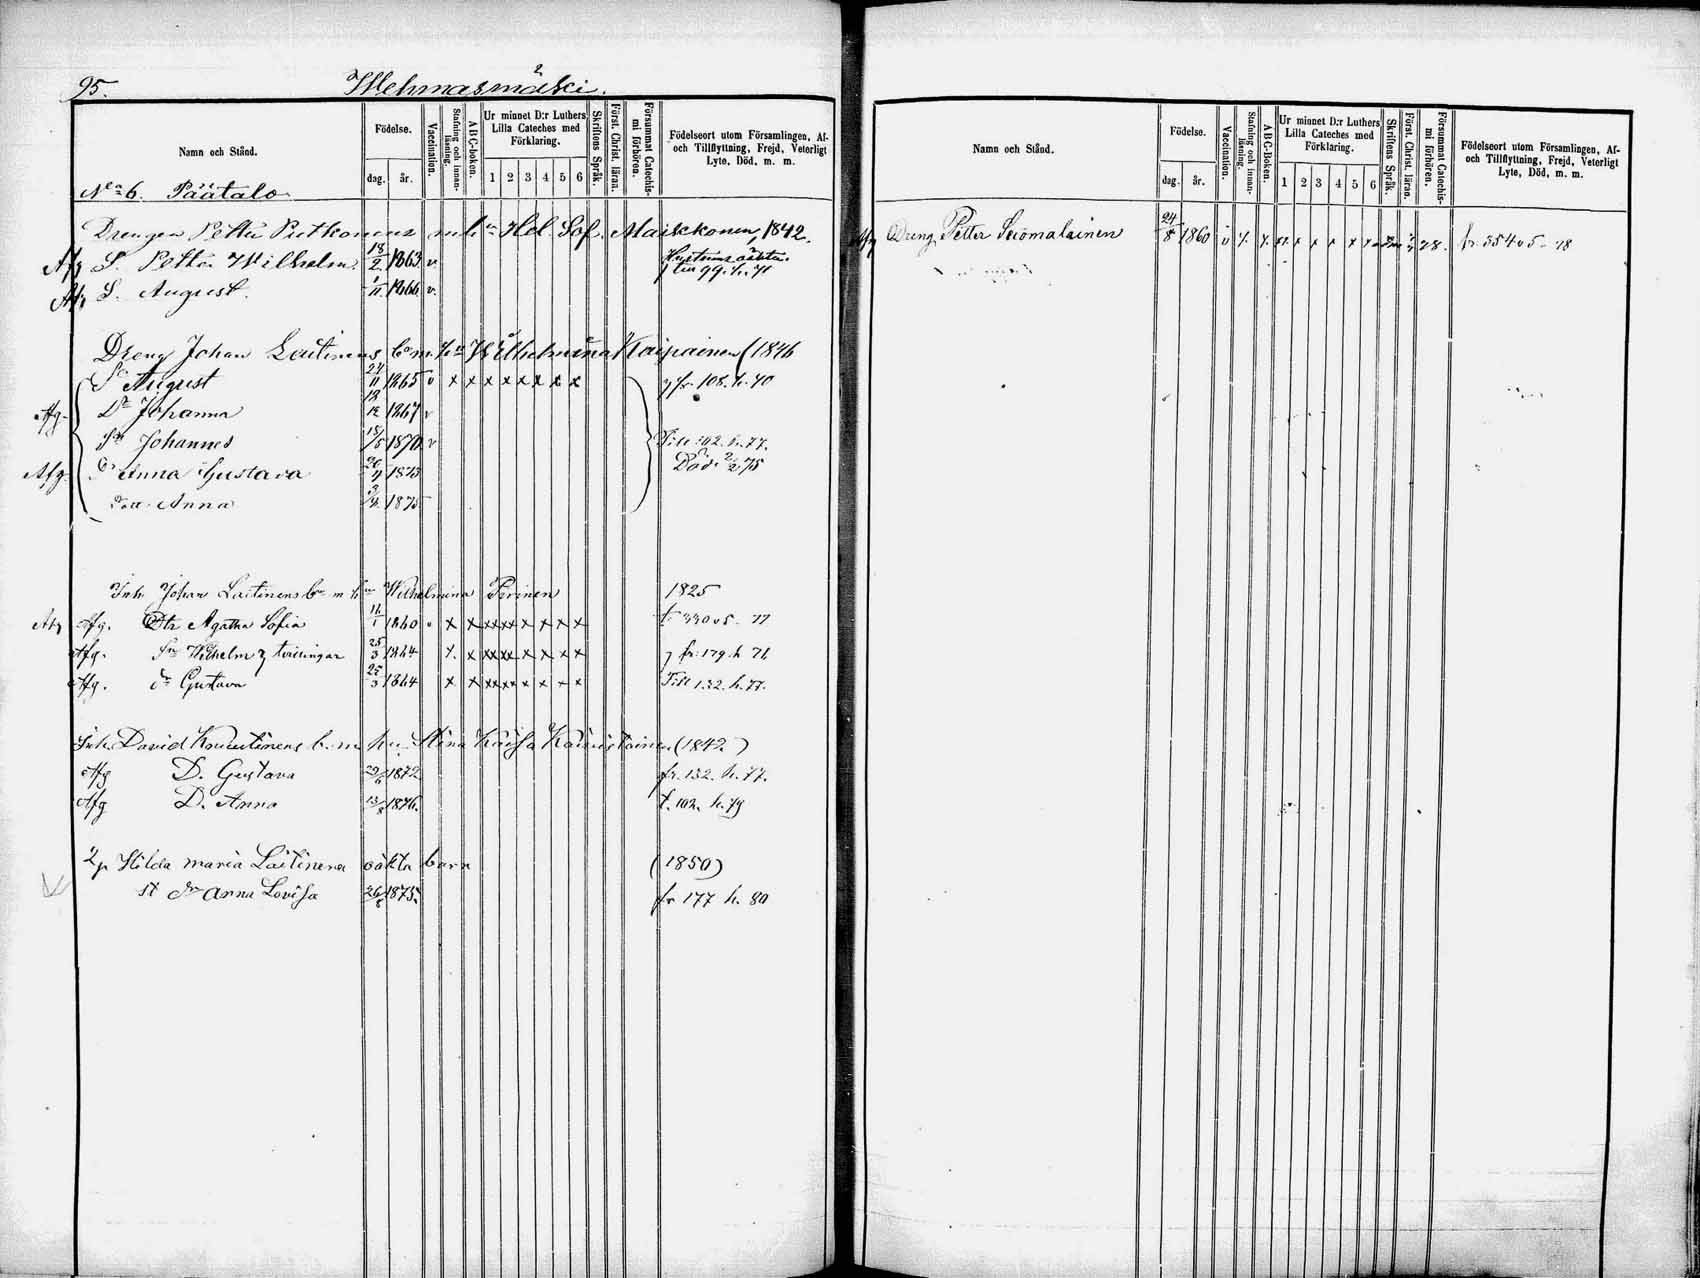 95. Wehmasmäki. 2
Namn och Stånd.
Födelse.
dag. år.
Vaccination.
Stafning och innanläsning.
ABC-boken.
Ur minnet D:r Luthers Lilla Cateches med Förklaring.
1 2 3 4 5 6
Skriftens Språk.
Först. Christ. läran.
Försummat Catechismi förhören.
Födelseort utom Församlingen, Af- och Tillflyttning, Frejd, Veterligt Lyte, Död, m. m.
No 6. Päätalo
Drengen Petter m. h. Hel. Sof. Maikkonen, 1842.
Afg S. Petter Wilhelm 18/2 1863 v. Hustruns oäkta
till 99. h. 71
Afg S. August. 1/11 1866 v.
Dreng Johan Laitinens b. m. h. Wilhelmina Kaipainen (1846
Sn August 24/11 1865 v x x x x x x x x fr 108. h. 70
Afg Dr Johanna 18/12 1867 v
Sn Johannes 18/5 1870 v Till 102. h. 77.
Afg. Dr Anna Gustava 20/4 1873 Död 2/2 75
Dott. Anna 1875
Inh. Johan Laitinens bn m hu Wilhelmina Pirinen 1825
Afg Afg. Dtr Agatha Sofia 11/1 1860 v x x xx xx x x x x t. 330 v 5 - 77
Afg. Sn Wilhelm } tvillingar 25/3 1864 x. x xx xx x x x x fr. 179. h 76
Afg. Dr Gustava 25/3 1864 x x xx xx x x x x Till 132. h. 77.
Inh. David b. m. hu. Stina Kaisa (1842.)
Afg D. Gustava 29/6 1872 fr. 132. h. 77.
Afg D. Anna 13/8 1876. t. 102. h. 79
Hilda Maria Laitinens oäkta barn (1850)
Dr Anna Lovisa 26/8 1875. fr 177 h. 80
Namn och Stånd.
Födelse.
dag. år.
Vaccination.
Stafning och innanläsning.
ABC-Boken.
Ur minnet D:r Luthers Lilla Cateches med Förklaring.
1 2 3 4 5 6
Skriftens Språk.
Först. Christ. läran.
Försummat Catechismi förhören.
Födelseort utom Församlingen, Af- och Tillflyttning, Frejd, Veterligt Lyte, Död, m. m.
Afg Dreng Petter Suomalainen 24/8 1860 v x. x. x x x x x 78. fr. 354 v 5 - 78